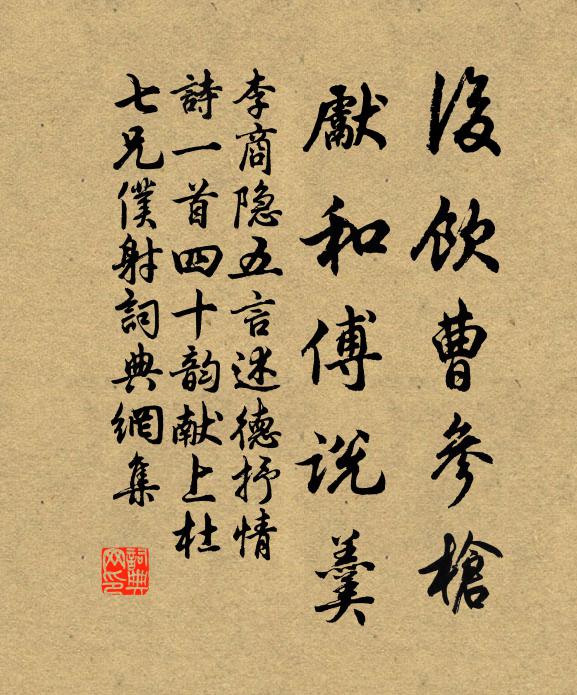 後飲曹參槍
獻和傅說羹
李商隐五言述德抒情
詩一首四十韵献上杜
七兄僕射詞典網集
詞典
网印